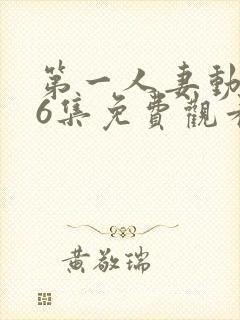 第一人妻動
6集免費觀看
黄敬瑞